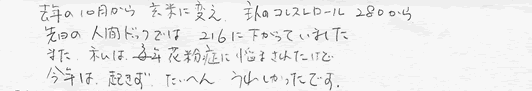 去年の10月から 玄米に変え、主人のコレステロール 280から
先日の人間ドックでは 216に下がっていました
また、私は、毎年花粉症に悩まされたけど
今年は、起きず、たいへん うれしかったです。